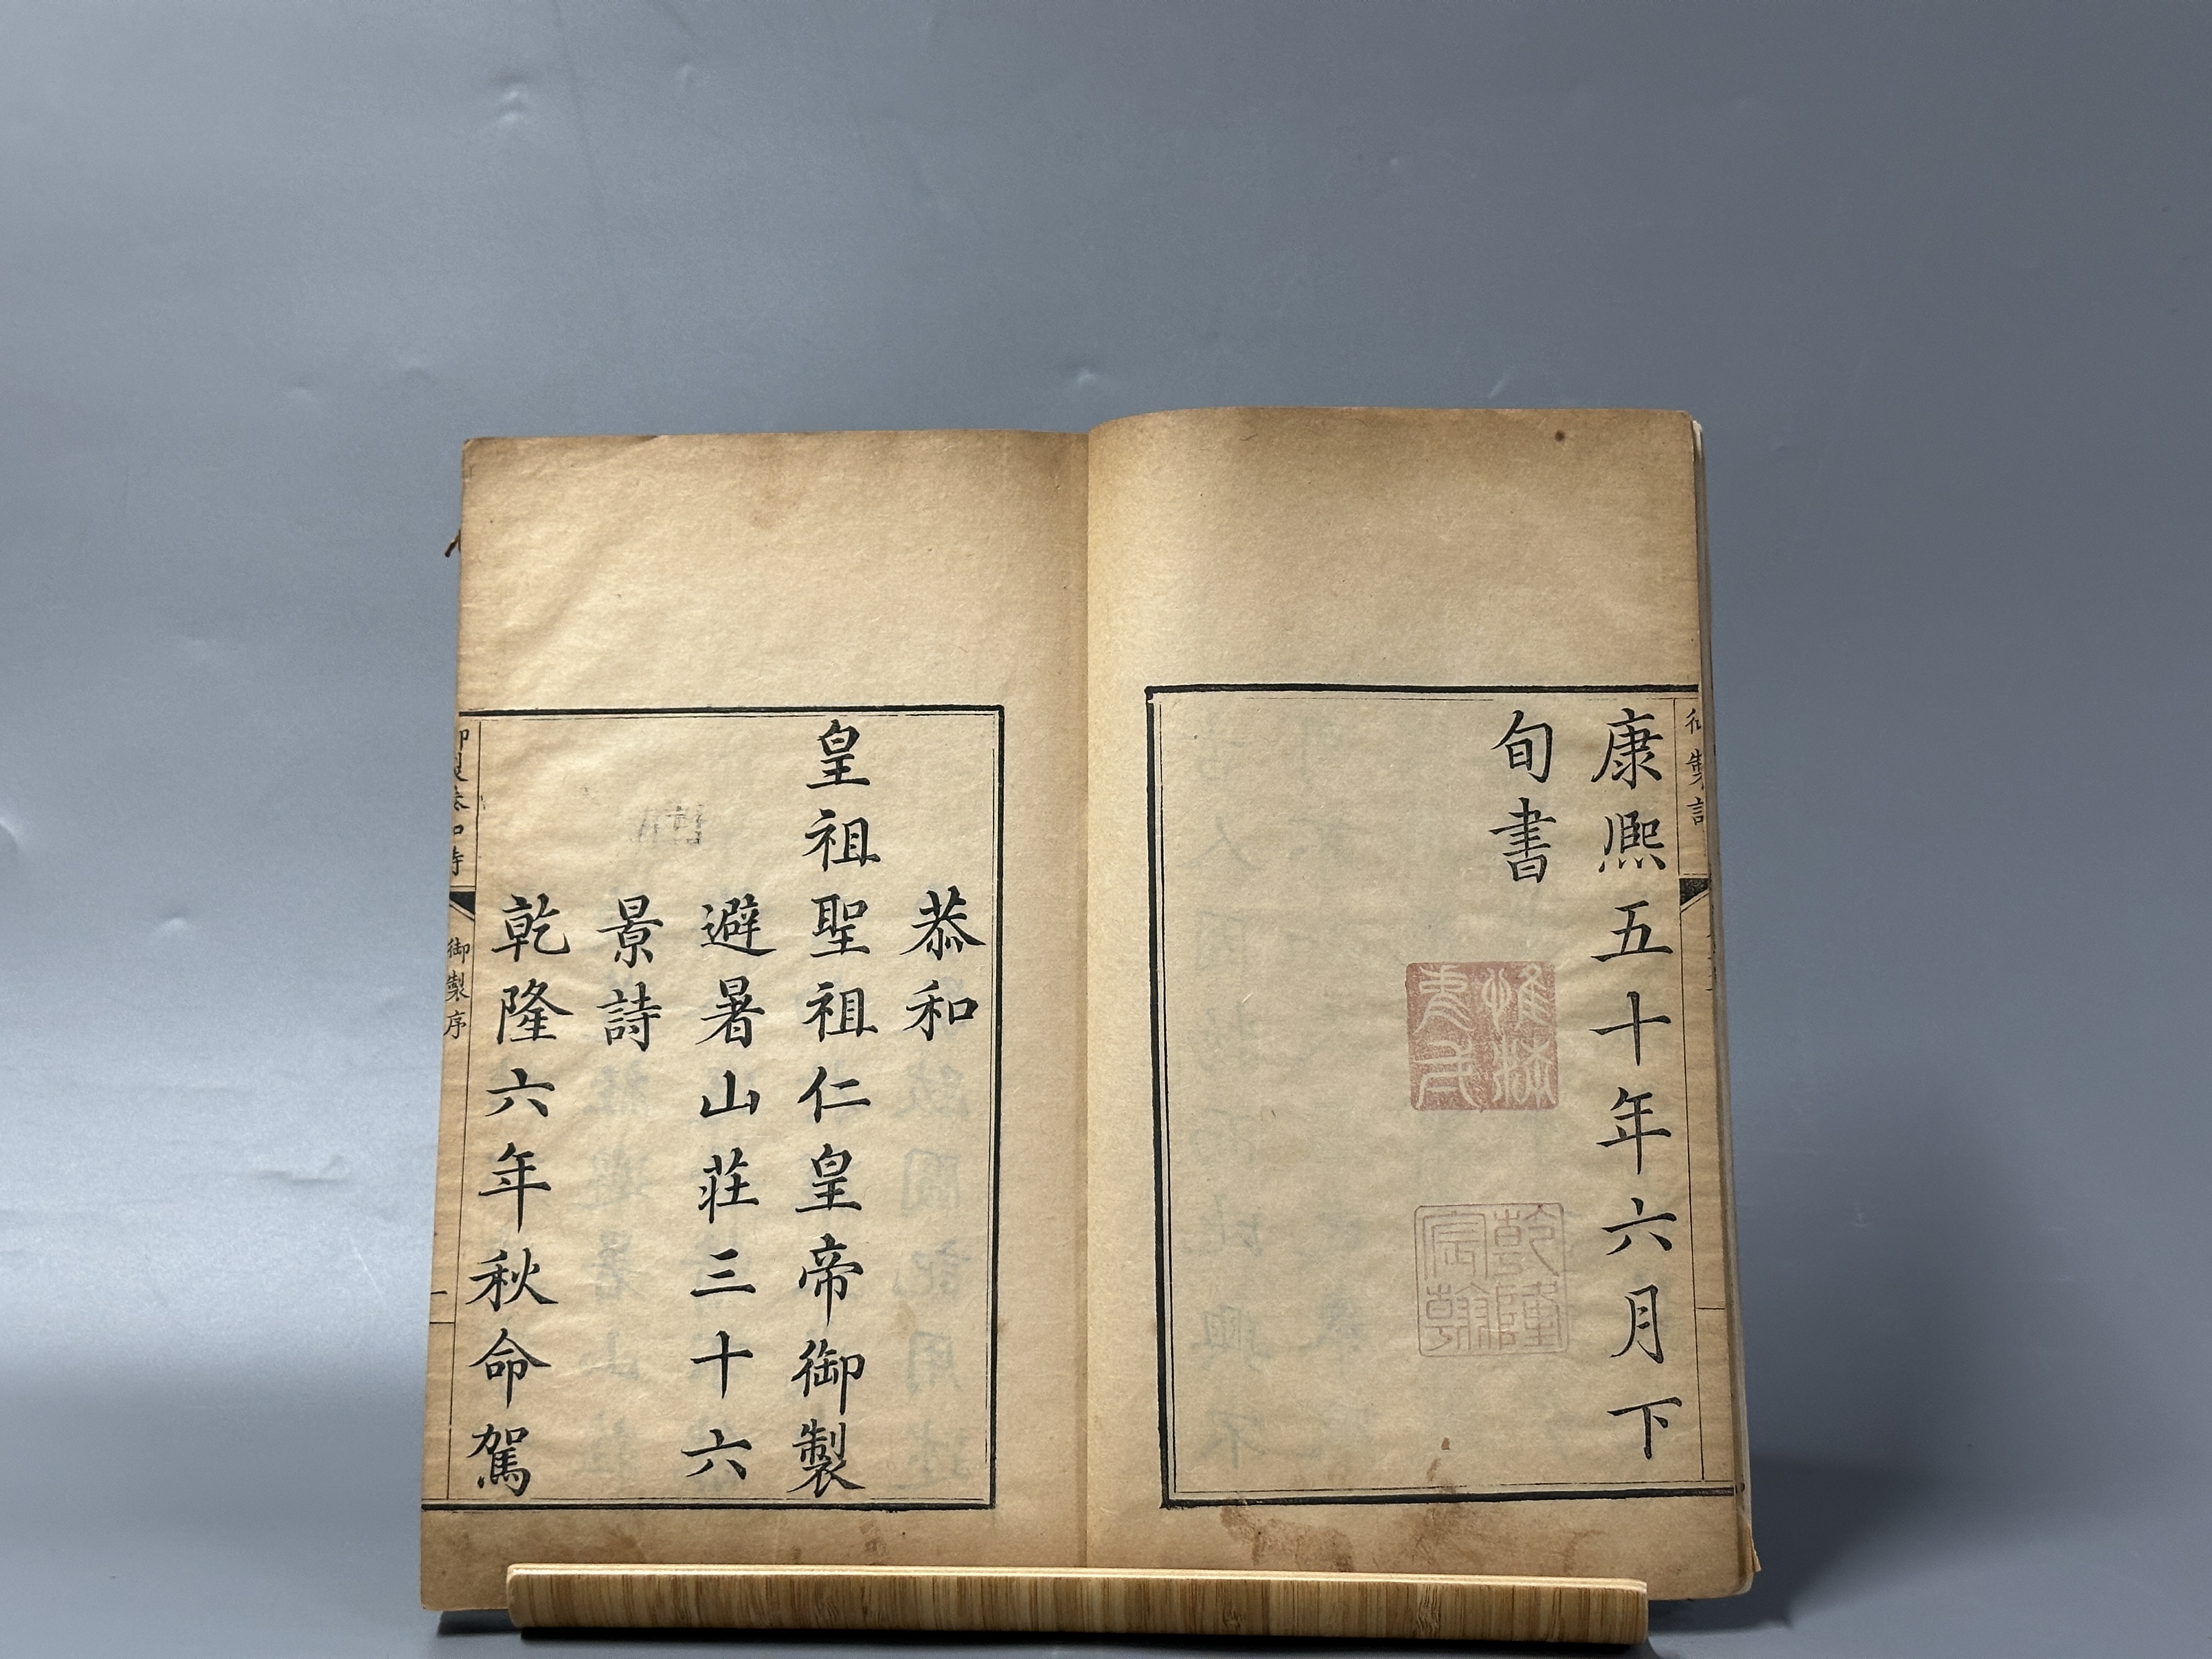 康熙五十年六月下
旬書
乾隆
宸翰
恭和
皇祖聖祖仁皇帝御製
避暑山莊三十六
景詩
乾隆六年秋命駕
御製序
一